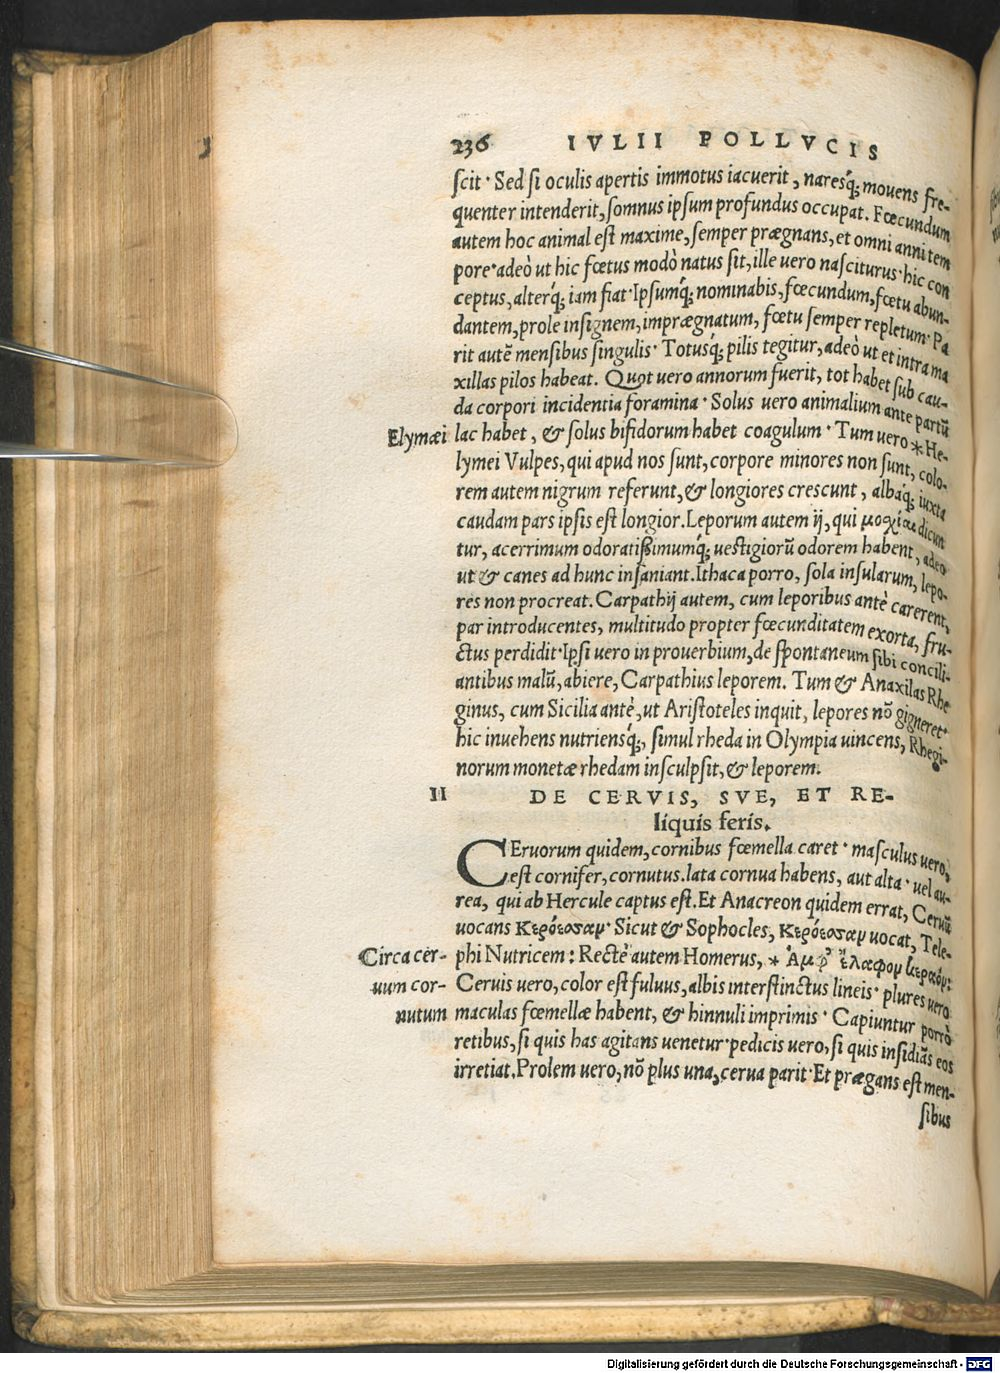 236 IVLII POLLVCIS
scit. Sed si oculis apertis immotus iacuerit, naresq́; mouens fre-
quenter intenderit, somnus ipsum profundus occupat. Fœcundum
autem hoc animal est maxime, semper prægnans, et omni anni tem
pore. adeò ut hic fœtus modò natus sit, ille uero nasciturus. hic con
ceptus, alterq́; iam fiat. Ipsumq́; nominabis, fœcundum, fœtu abun-
dantem, prole insignem, imprægnatum, fœtu semper repletum. Pa
rit autē mensibus singulis. Totusq́; pilis tegitur, adeò ut et intra ma
xillas pilos habeat. Quot uero annorum fuerit, tot habet sub cau-
da corpori incidentia foramina. Solus uero animalium ante partū
Elymæi lac habet, & solus bifidorum habet coagulum. Tum uero * He-
lymei Vulpes, qui apud nos sunt, corpore minores non sunt, colo-
rem autem nigrum referunt, & longiores crescunt, albaq́; iuxta
caudam pars ipsis est longior. Leporum autem ij, qui μοσχίαι dicun
tur, acerrimum odoratißimumq́; uestigiorū odorem habent, adeo
ut & canes ad hunc insaniant. Ithaca porro, sola insularum, lepo-
res non procreat. Carpathij autem, cum leporibus antè carerent,
par introducentes, multitudo propter fœcunditatem exorta, fru-
ctus perdidit. Ipsi uero in prouerbium, de spontaneum sibi concili-
antibus malū, abiere, Carpathius leporem. Tum & Anaxilas Rhe
ginus, cum Sicilia antè, ut Aristoteles inquit, lepores nō gigneret.
hic inuehens nutriensq́;, simul rheda in Olympia uincens, Rhegi-
norum monetæ rhedam insculpsit, & leporem.
II DE CERVIS, SVE, ET RE-
liquis feris.
CEruorum quidem, cornibus fœmella caret. masculus uero,
est cornifer, cornutus. lata cornua habens, aut alta. uel au-
rea, qui ab Hercule captus est. Et Anacreon quidem errat, Ceruū
uocans κερόεσσαν. Sicut & Sophocles, κερόεσσαν uocat, Tele-
Circa cer- phi Nutricem: Rectè autem Homerus, * Ἀμφ' ἔλαφον κεραόν:
uum cor- Ceruis uero, color est fuluus, albis interstinctus lineis. plures uero
nutum maculas fœmellæ habent, & hinnuli imprimis. Capiuntur porrò
retibus, si quis has agitans uenetur. pedicis uero, si quis insidiās eos
irretiat. Prolem uero, nō plus una, cerua parit. Et prægans est men-
sibus
Digitalisierung gefördert durch die Deutsche Forschungsgemeinschaft - DFG